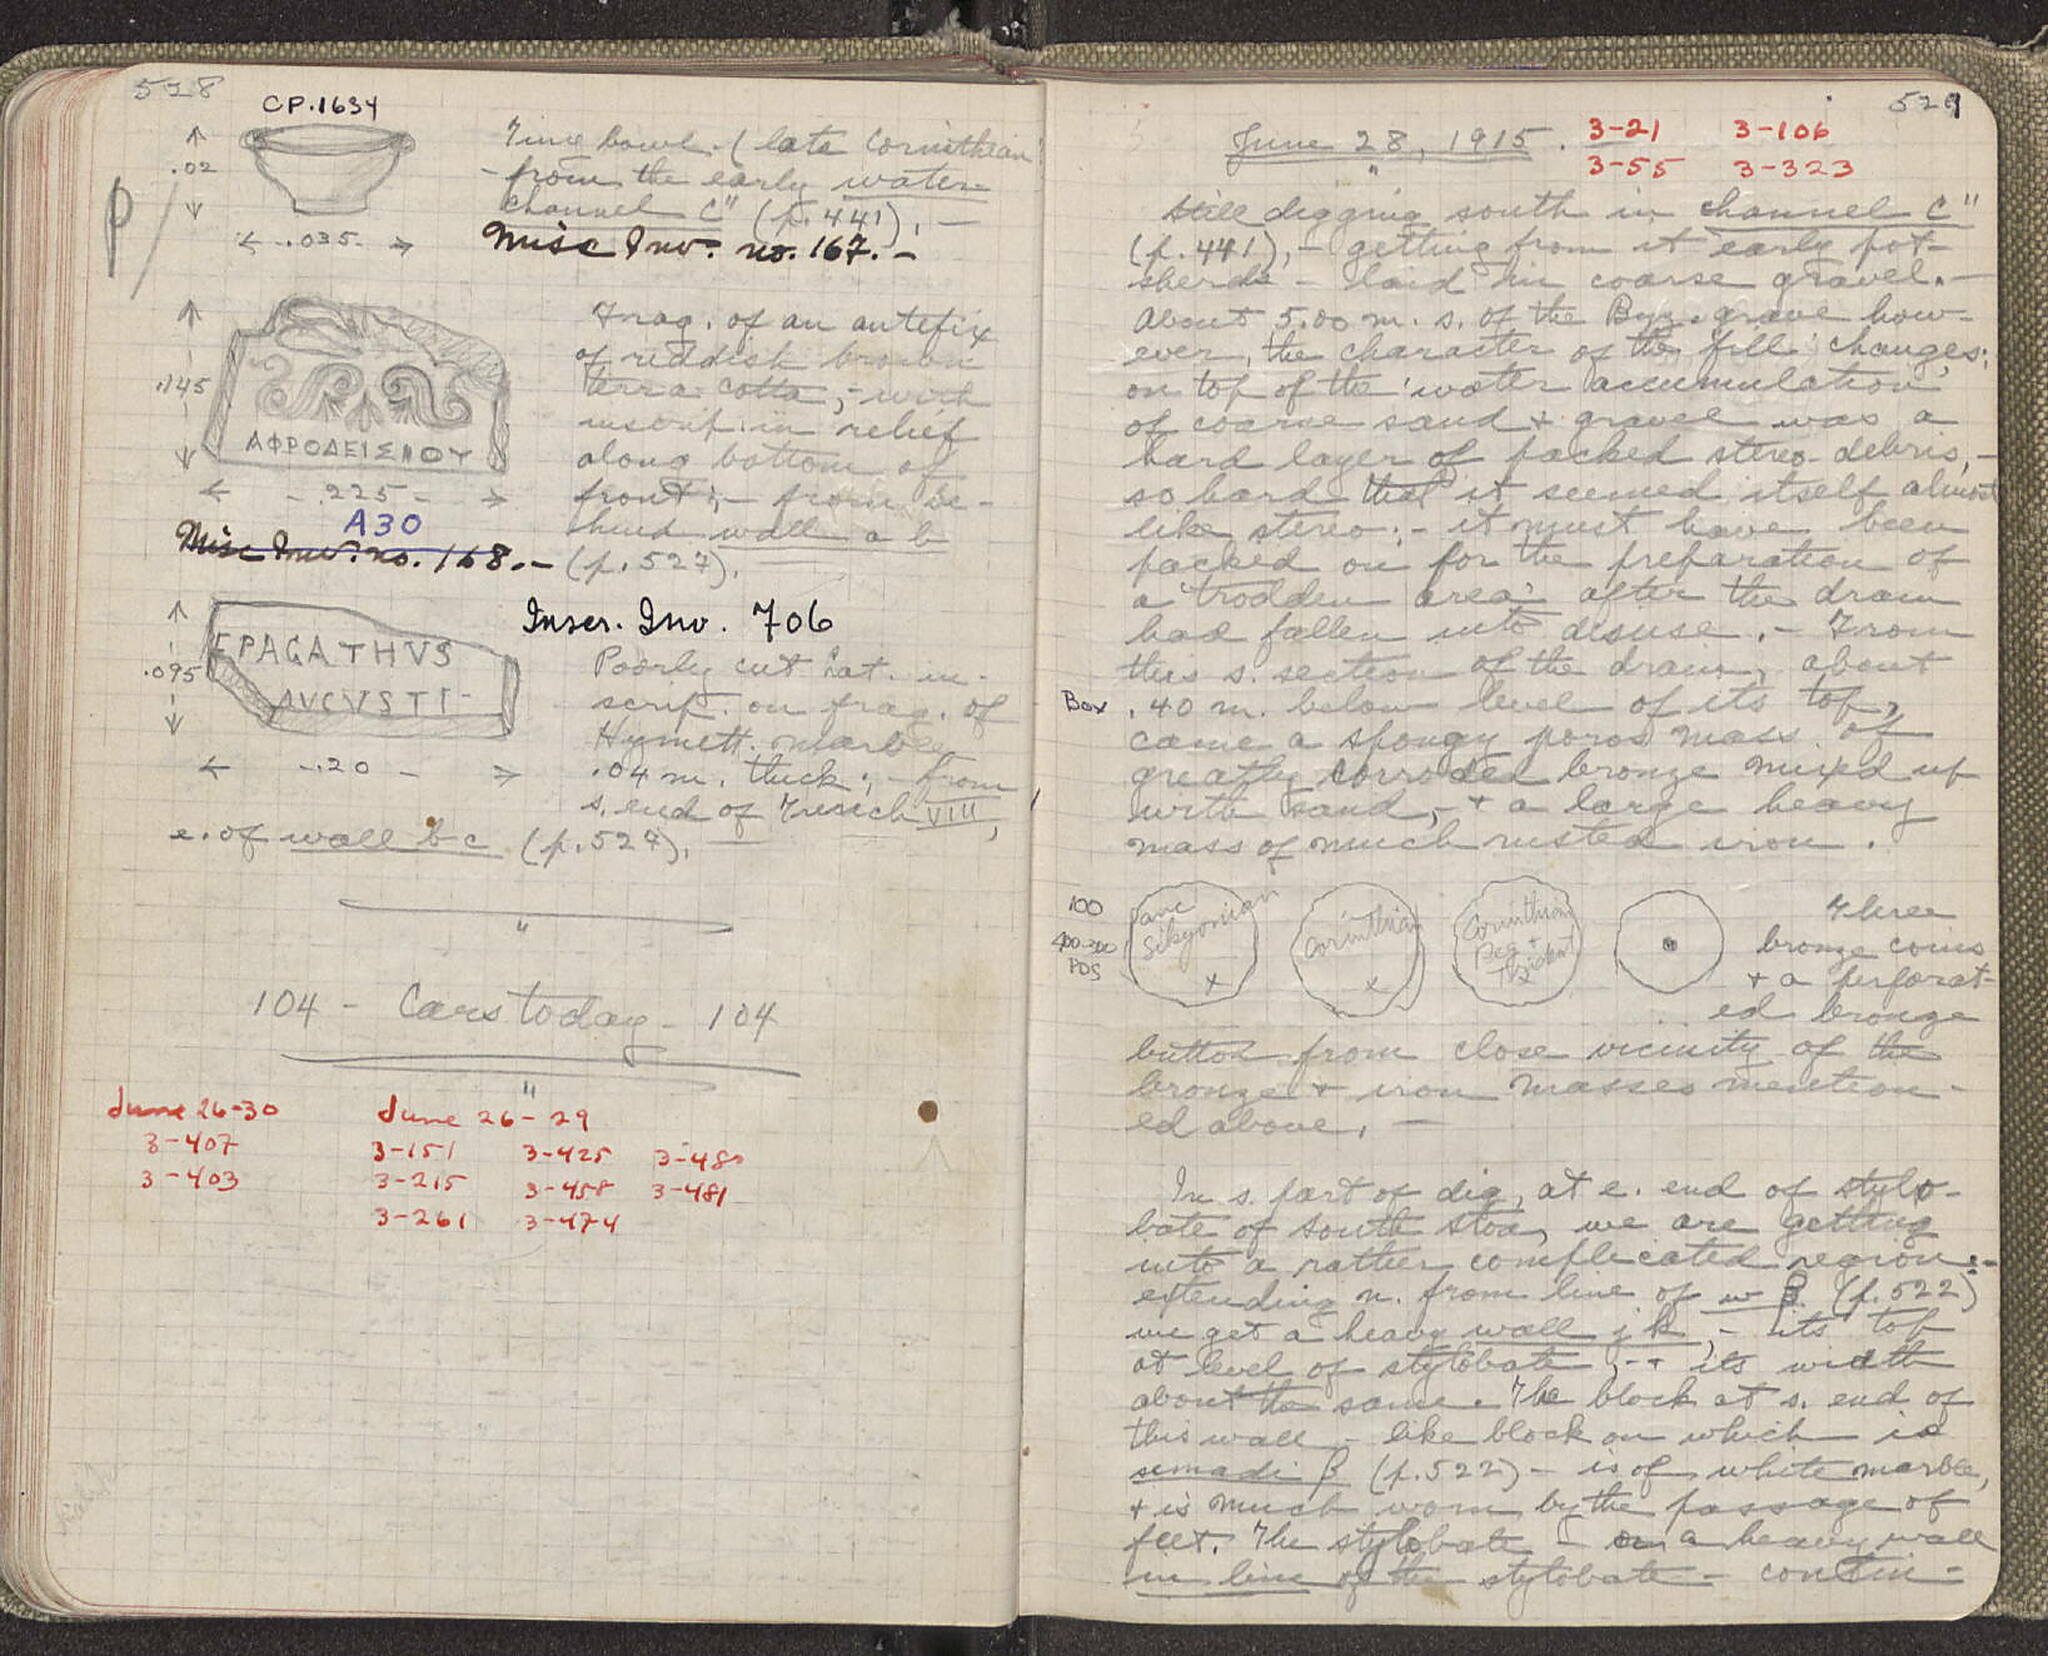 528
CP.1634
.02
.035
P/
Tiny bowl - (late Corinthian)
- from the early water-
channel C" (p.441), -
Misc Inv. no. 167. -
.145
ΑΦΡΟΔΕΙΣΠΟΥ
.225
A30
Misc Inv. no. 168. -
Frag. of an antefix
of reddish brown
terra cotta, - with
inscrip. in relief
along bottom of
front; - from be-
hind wall a b
(p.527). -
.095
EPAGATHVS
AVGVSTI
.20
Inscr. Inv. 706
Poorly cut Lat. in-
scrip. on frag. of
Hymett. marble
.04 m. thick; - from
s. end of Trench VIII,
e. of wall b c (p.527). -
"
104 - Cars today - 104
"
June 26-30
3-407
3-403
June 26-29
3-151 3-425 3-480
3-215 3-458 3-481
3-261 3-474
529
June 28, 1915.
"
3-21 3-106
3-55 3-323
Still digging south in channel C"
(p.441), - getting from it early pot-
sherds - laid in coarse gravel. -
About 5.00 m. s. of the Byz. grave how-
ever, the character of the fill changes;
on top of the 'water accumulation'
of coarse sand + gravel was a
hard layer of packed stereo debris, -
so hard that it seemed itself almost
like stereo; - it must have been
packed on for the preparation of
a 'trodden area' after the drain
had fallen into disuse. - From
this s. section of the drain, about
Box
.40 m. below level of its top,
came a spongy poros mass of
greatly corroded bronze mixed up
with sand, - + a large heavy
mass of much rusted iron.
100
400-300
POS
Sikyonian
x
Corinthian
x
Corinthian
Peg +
Trident
x
Three
bronze coins
+ a perforat-
ed bronze
button from close vicinity of the
bronze + iron masses mention-
ed above. -
In s. part of dig, at e. end of stylo-
bate of South Stoa, we are getting
into a rather complicated region: -
extending n. from line of w β (p.522)
we get a heavy wall j k, - its top
at level of stylobate, - + its width
about the same. The block at s. end of
this wall - like block on which is
simadi β (p.522) - is of white marble,
+ is much worn by the passage of
feet. The stylobate - or a heavy wall
in line of the stylobate - contin-